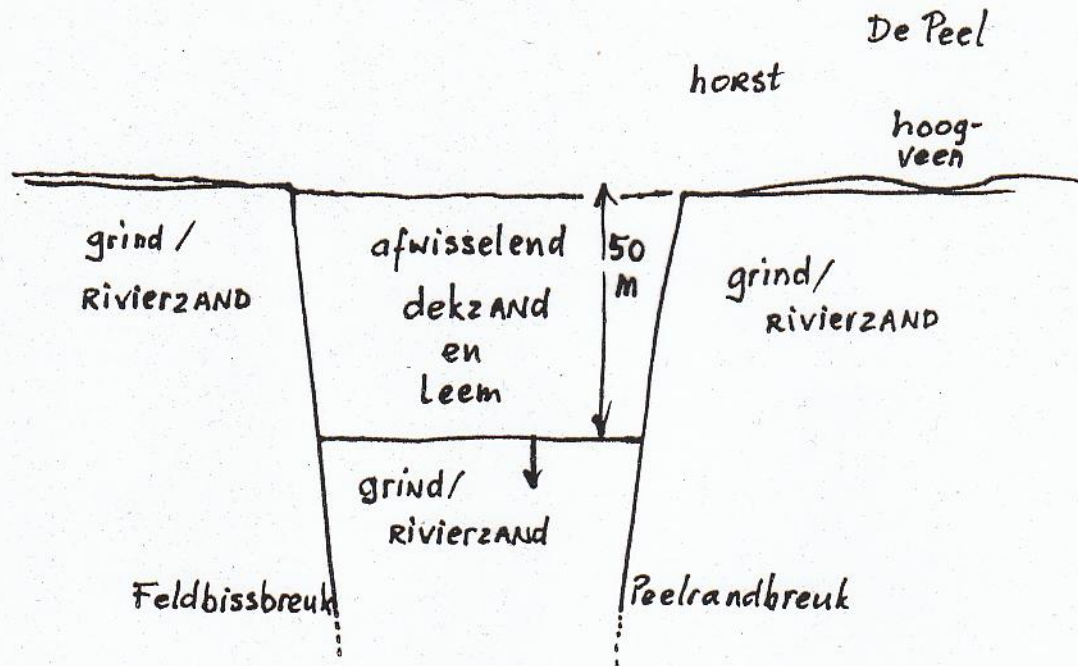 De Peel
horst
hoog-
veen
grind/
Rivierzand
afwisselend
dekzand
en
Leem
50
m
grind/
Rivierzand
grind/
Rivierzand
Feldbissbreuk
Peelrandbreuk